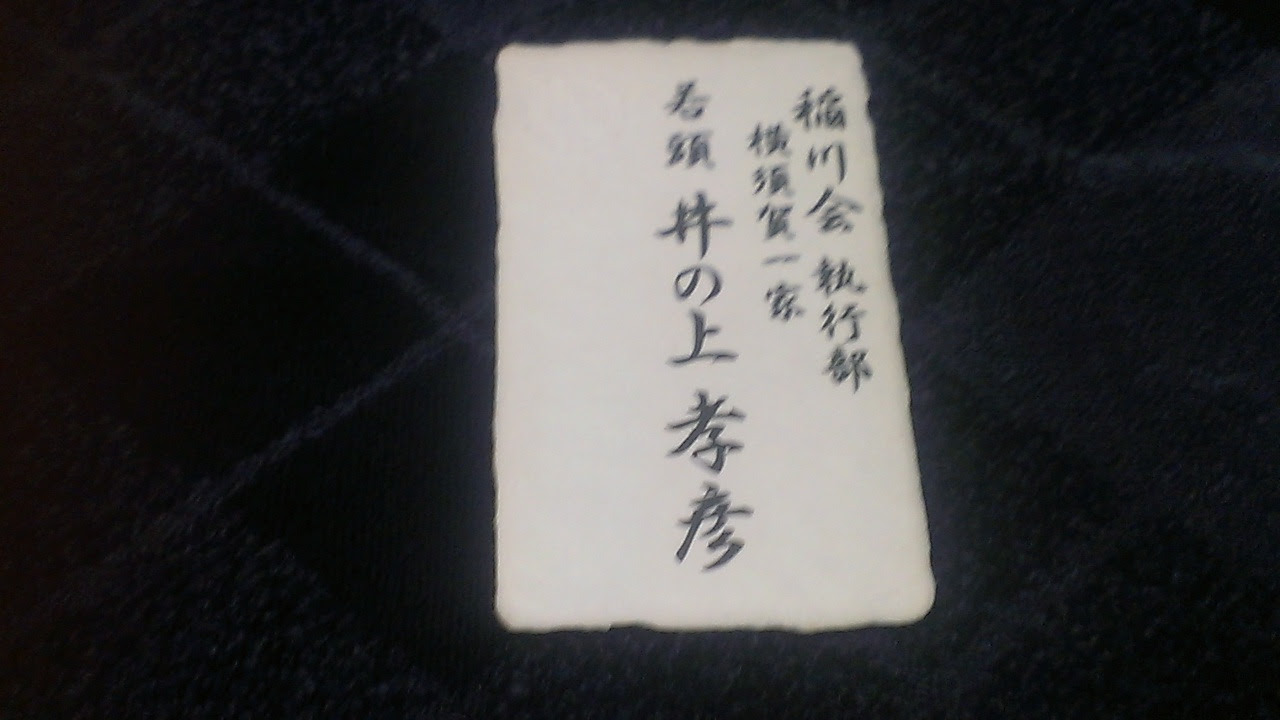 稲川会 執行部
横須賀一家
若頭 井の上 孝彦